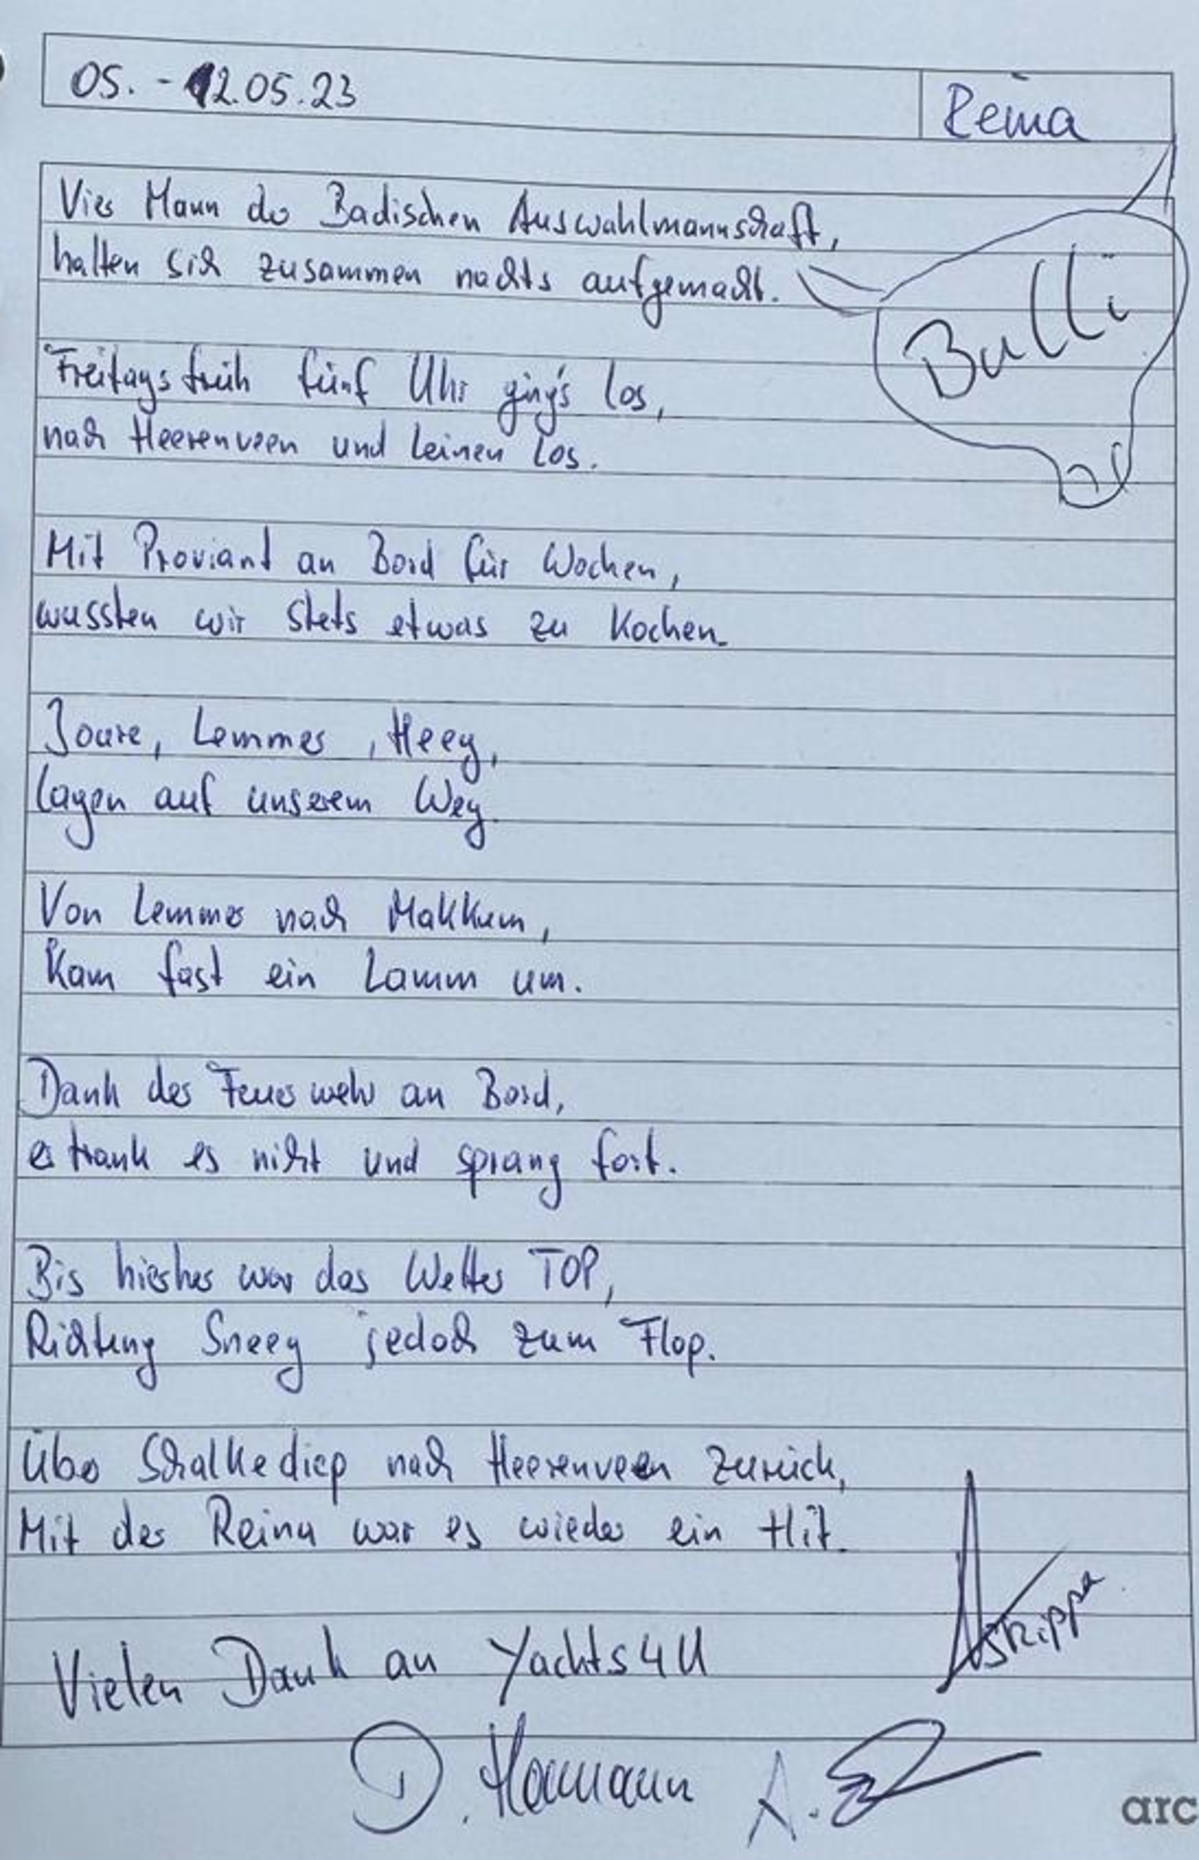 05. - 12.05.23
Reina
Vier Mann der Badischen Auswahlmannschaft,
halten sich zusammen nachts aufgemacht.
Bulli
Freitags früh fünf Uhr ging's los,
nach Heerenveen und Leinen Los.
Mit Proviant an Bord für Wochen,
wussten wir stets etwas zu Kochen.
Joure, Lemmer, Heeg,
lagen auf unserem Weg.
Von Lemmer nach Makkum,
Kam fast ein Lamm um.
Dank der Feuerwehr an Bord,
ertrank es nicht und sprang fort.
Bis hierher war das Wetter TOP,
Richtung Sneeg jedoch zum Flop.
Über Schalkediep nach Heerenveen zurück,
Mit der Reina war es wieder ein Hit.
Skippa
Vielen Dank an Yachts4U
D. A.
arc